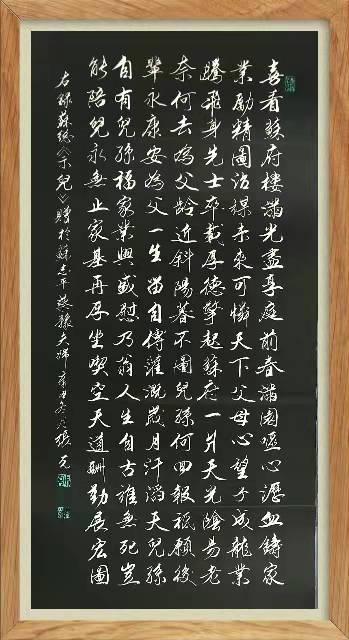 喜看蘇府樓滿光盡享庭前春滿園嘔心瀝血鑄家
業勵精圖治謀未來可憐天下父母心望子成龍業
騰飛身先士卒載厚德擎起蘇府一片天光陰易老
奈何去為父齡近斜陽暮不圖兒孫何回報祇願後
輩永康安為父一生當自傳灌溉歲月汗滔天兒孫
自有兒孫福家業興盛慰乃翁人生自古誰無死豈
能陪兒永無止家基再厚坐喫空天道酬勤展宏圖
右録蘇總《示兒》歸於蘇志平燕